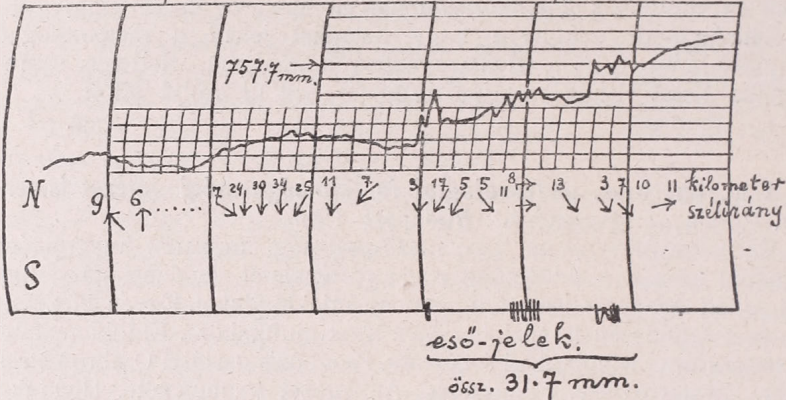 757.7 mm.
N 9 6 7 24 39 34 25 11 7 9 17 5 5 11 8 13 3 7 10 11 kilometer
szélirány
S
eső-jelek.
össz. 31.7 mm.